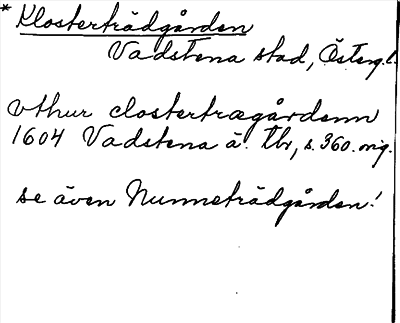 * Klosterträdgården
Vadstena stad, Österg.l.
vthur clostertrægårdenn
1604 Vadstena ä. tb, s. 360. orig.
se även Nunneträdgården!